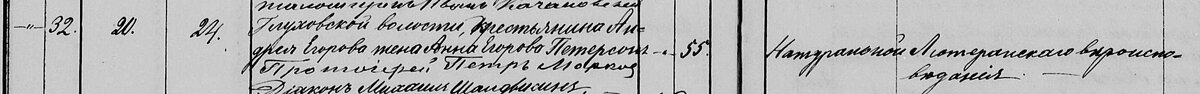 Глуховской волости, Крестьянина Ан-
-"- 32. 20. 24. дрея Егорова жена Анна Егорова Петерсонъ -"- 55. Натуральной Лютеранскаго вѣроиспо-
Протоіерей Петръ вѣданія
Діаконъ Михаилъ